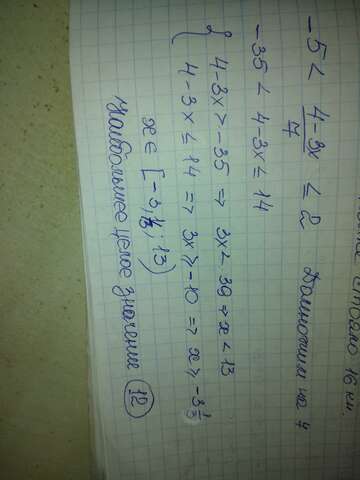 ... 16 км.
-5 < \frac{4-3x}{7} ≤ 2 Домножим на 7
-35 < 4-3x ≤ 14
{ 4-3x > -35 => 3x < 39 => x < 13
4-3x ≤ 14 => 3x ≥ -10 => x ≥ -3 1/3
x ∈ [-3 1/3; 13)
Наибольшее целое значение 12